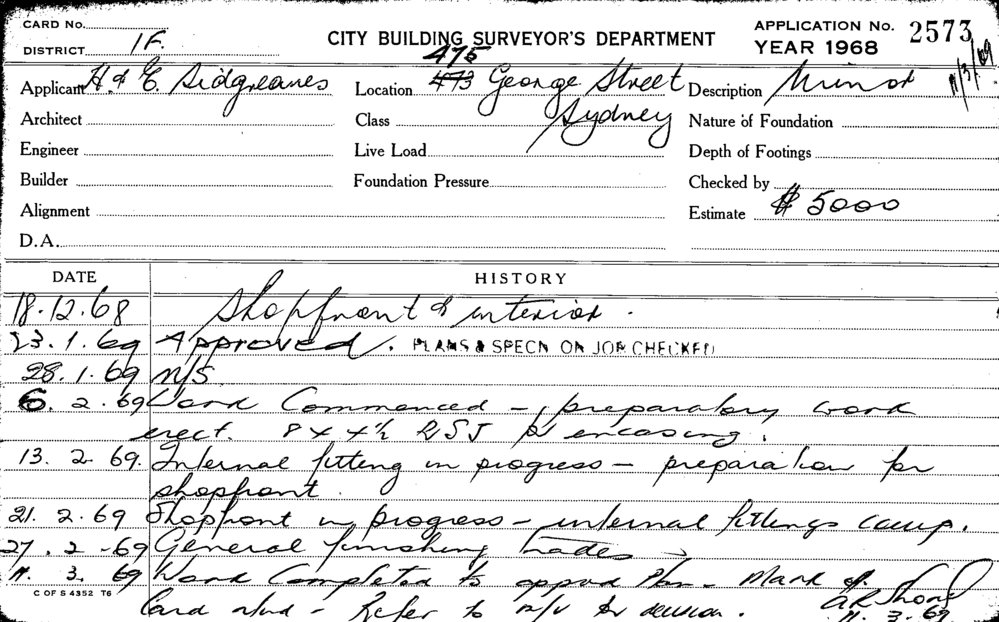 CARD No.
DISTRICT 1F.
CITY BUILDING SURVEYOR'S DEPARTMENT
APPLICATION No. 2573
YEAR 1968
11/3/69
Applicant H & E. Sidgreaves
Location 475 473 George Street
Sydney
Description Minor
Architect
Class
Nature of Foundation
Engineer
Live Load
Depth of Footings
Builder
Foundation Pressure
Checked by
Alignment
Estimate $ 5000
D.A.
DATE HISTORY
18.12.68 Shopfront & interior.
23.1.69 Approved. PLANS & SPECN ON JOB CHECKED
28.1.69 N/S.
6.2.69 Work Commenced - preparatory work
erect. 8 x 4 ½ RSJ encasing.
13.2.69. Internal fitting in progress - preparation for
shopfront.
21.2.69 Shopfront in progress - internal fittings comp.
27.2-69 General finishing trades
11.3.69 Work Completed to approd Plan - Mark of.
Card - Refer to for decision.
11.3.69
C OF S 4352 T6